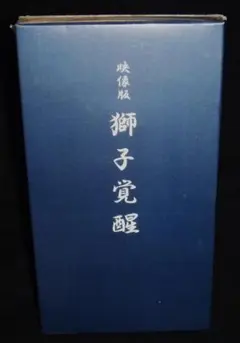 映像版
獅子覚醒